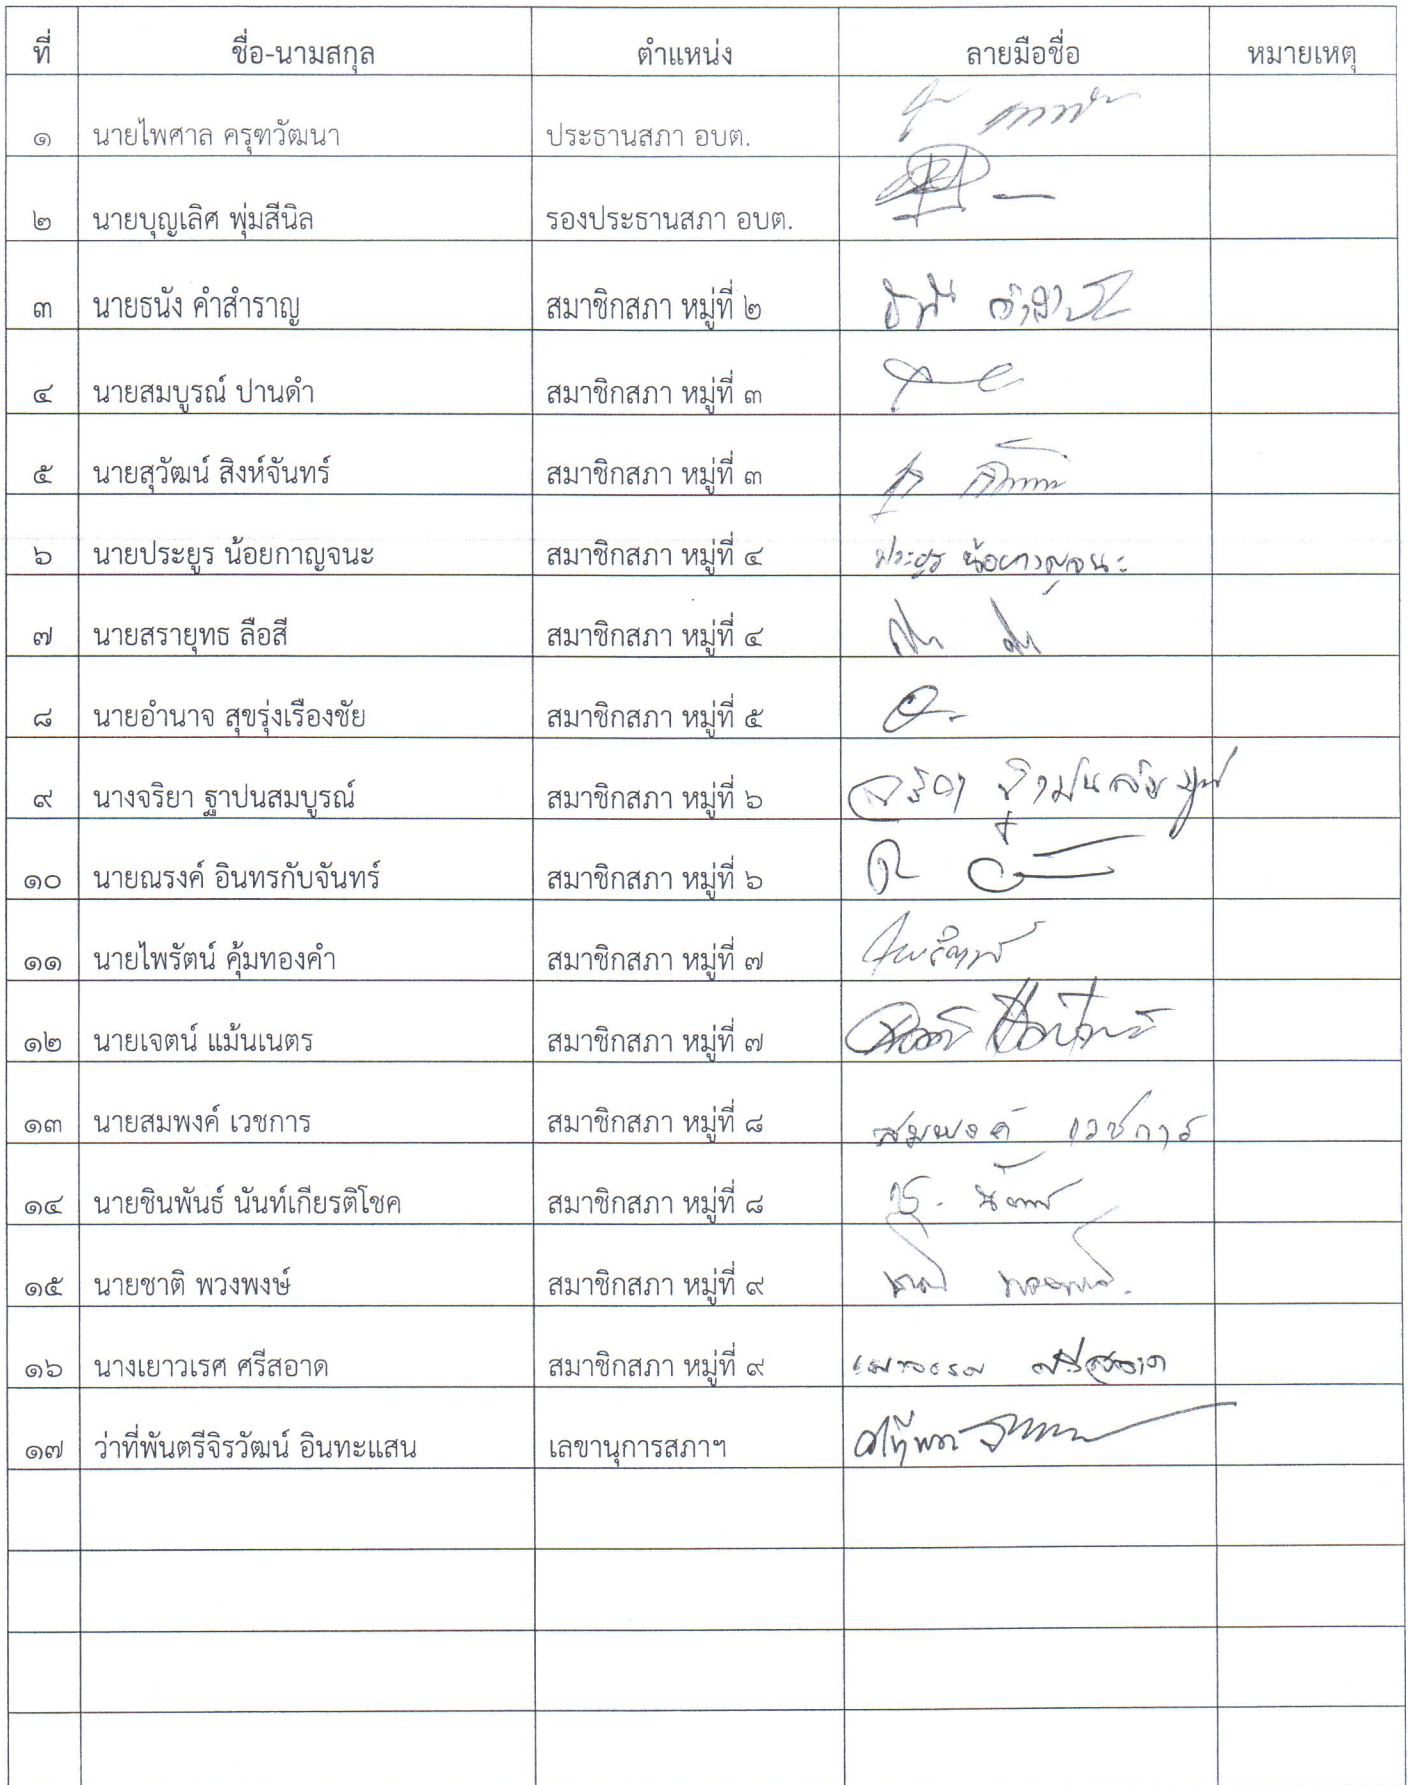 ที่ ชื่อ-นามสกุล ตำแหน่ง ลายมือชื่อ หมายเหตุ
๑ นายไพศาล ครุฑวัฒนา ประธานสภา อบต.
๒ นายบุญเลิศ พุ่มสีนิล รองประธานสภา อบต.
๓ นายธนัง คำสำราญ สมาชิกสภา หมู่ที่ ๒
๔ นายสมบูรณ์ ปานดำ สมาชิกสภา หมู่ที่ ๓
๕ นายสุวัฒน์ สิงห์จันทร์ สมาชิกสภา หมู่ที่ ๓
๖ นายประยูร น้อยกาญจนะ สมาชิกสภา หมู่ที่ ๔ ประยูร น้อยกาญจนะ
๗ นายสรายุทธ ลือสี สมาชิกสภา หมู่ที่ ๔
๘ นายอำนาจ สุขรุ่งเรืองชัย สมาชิกสภา หมู่ที่ ๕
๙ นางจริยา ฐาปนสมบูรณ์ สมาชิกสภา หมู่ที่ ๖ จริยา ฐาปนสมบูรณ์
๑๐ นายณรงค์ อินทรกับจันทร์ สมาชิกสภา หมู่ที่ ๖
๑๑ นายไพรัตน์ คุ้มทองคำ สมาชิกสภา หมู่ที่ ๗
๑๒ นายเจตน์ แม้นเนตร สมาชิกสภา หมู่ที่ ๗
๑๓ นายสมพงค์ เวชการ สมาชิกสภา หมู่ที่ ๘ สมพงค์ เวชการ
๑๔ นายชินพันธ์ นันท์เกียรติโชค สมาชิกสภา หมู่ที่ ๘
๑๕ นายชาติ พวงพงษ์ สมาชิกสภา หมู่ที่ ๙
๑๖ นางเยาวเรศ ศรีสอาด สมาชิกสภา หมู่ที่ ๙ เยาวเรศ ศรีสอาด
๑๗ ว่าที่พันตรีจิรวัฒน์ อินทะแสน เลขานุการสภาฯ